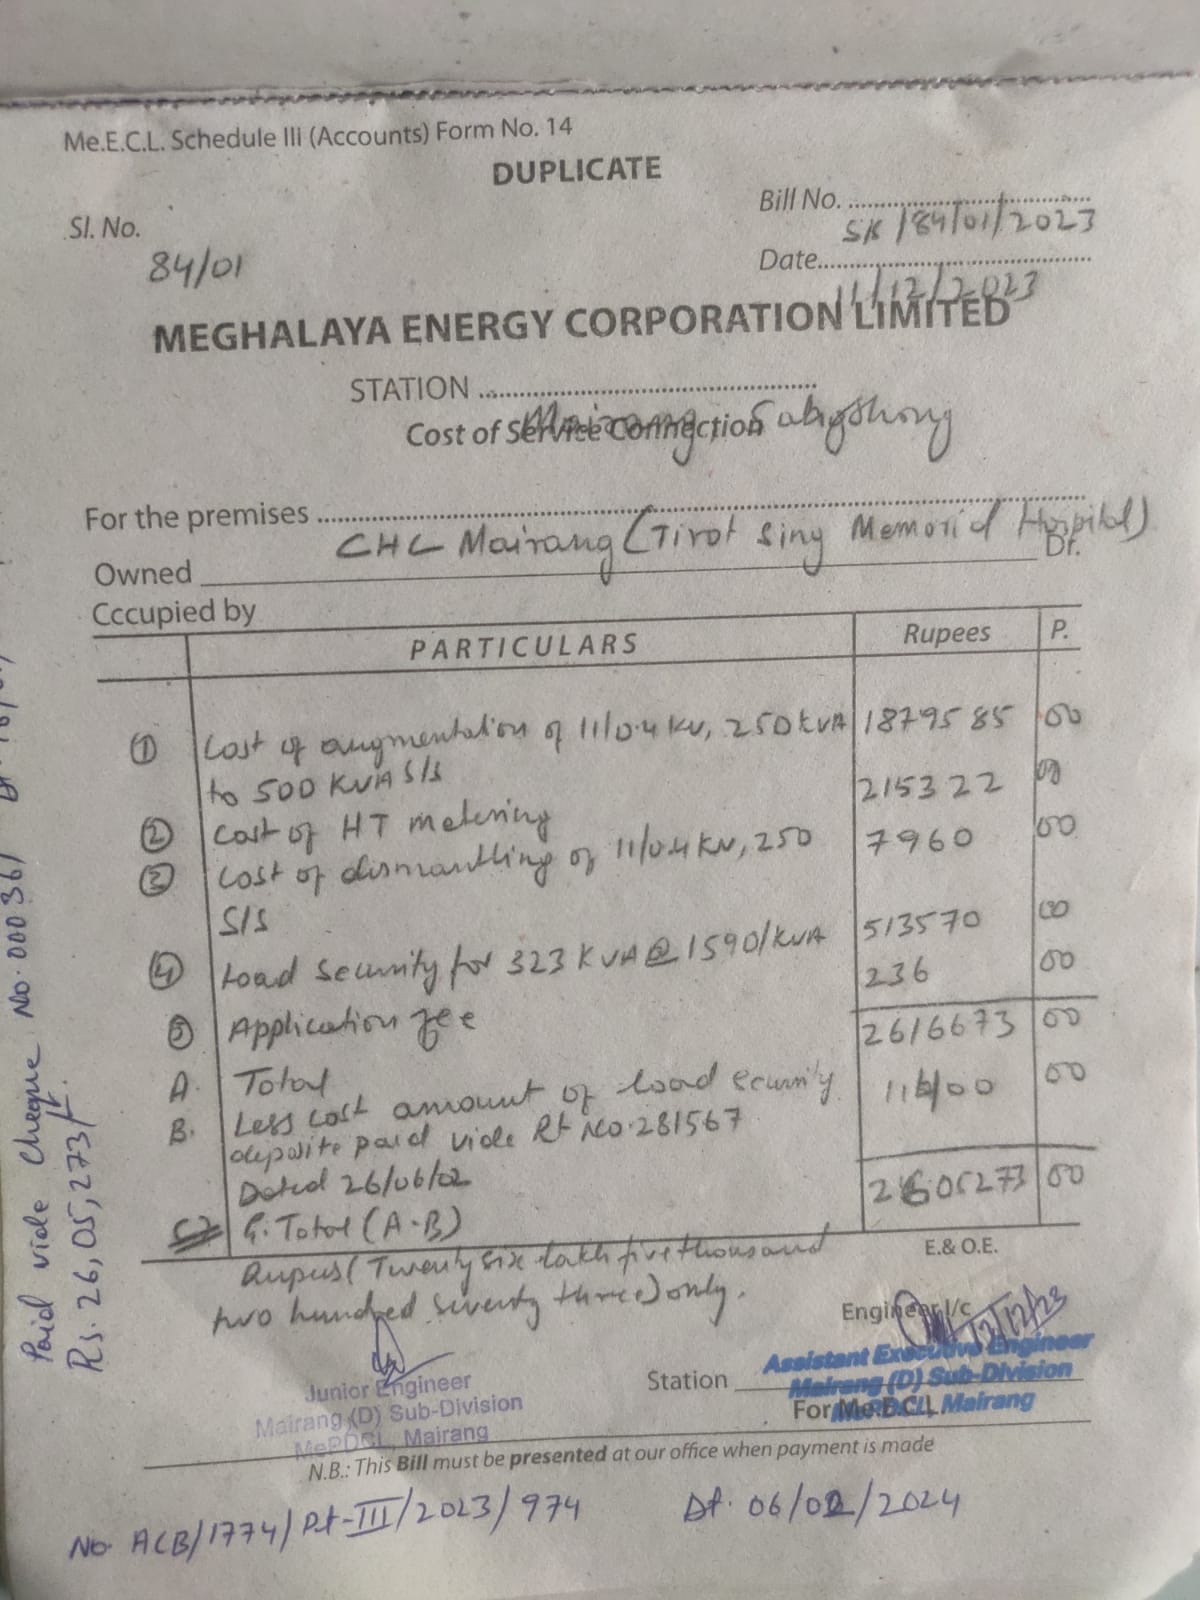 Me.E.C.L. Schedule III (Accounts) Form No. 14
DUPLICATE
Sl. No. 84/01
Bill No. SK/84/01/2023
Date 11/12/2023
MEGHALAYA ENERGY CORPORATION LIMITED
STATION Mairang,
Cost of Service Connection
For the premises
CHC Mairang (Tirot Sing Memorial Hospital)
Owned Dr.
Cccupied by
PARTICULARS Rupees P.
① Cost of augmentation of 11/0.4 kv, 250 kVA 1879585 00
to 500 KVA S/s
② Cost of HT metering 215322 00
③ Cost of dismantling of 11/0.4 KV, 250 7960 00
S/S
④ Load Security for 323 KVA @ 1590/KVA 513570 00
⑤ Application fee 236 00
A. Total 2616673 00
B. Less cost amount of load ecurity 11400 00
deposite paid vide Rt No. 281567
Dated 26/06/02
C> G. Total (A-B) 2605273 00
Rupees (Twenty six lakh five thousand
two hundred seventy three) only.
E.& O.E.
Engineer I/c
12/12/23
Assistant Executive Engineer
Station
Mairang (D) Sub-Division
For Me.E.C.L.
MePDCL, Mairang
Junior Engineer
Mairang (D) Sub-Division
MePDCL, Mairang
N.B.: This Bill must be presented at our office when payment is made
No. ACB/1774/Pt-III/2023/974 Dt. 06/02/2024
Paid vide Cheque No. 000361
Rs. 26,05,273/-